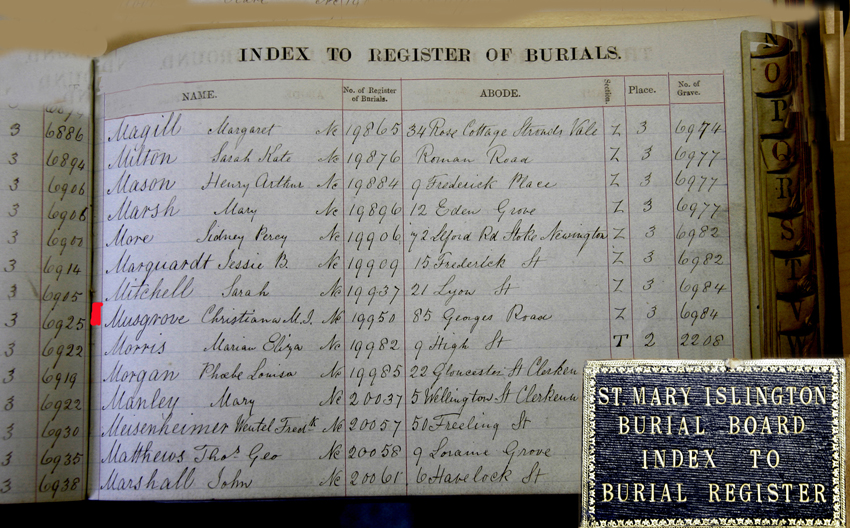 INDEX TO REGISTER OF BURIALS.
NAME. No. of Register of Burials. ABODE. Section. Place. No. of Grave.
3 6886 Magill Margaret No 19865 34 Rose Cottage Strouds Vale Z 3 6974
3 6894 Milton Sarah Kate No 19876 Roman Road Z 3 6977
3 6906 Mason Henry Arthur No 19884 9 Frederick Place Z 3 6977
3 6906 Marsh Mary No 19896 12 Eden Grove Z 3 6977
3 More Sidney Percy No 19906 72 Rd Stoke Newington Z 3 6982
3 6914 Marquardt Jessie B. No 19909 15 Frederick St Z 3 6982
3 6905 Mitchell Sarah No 19937 21 Lyon St Z 3 6984
3 6925 Musgrove Christiana M.J. No 19950 85 Georges Road Z 3 6984
3 6922 Morris Marian Eliza No 19982 9 High St T 2 2208
3 6919 Morgan Phoebe Louisa No 19985 22 Gloucester St Clerken
3 6922 Manley Mary No 20037 5 Wellington St Clerkenw
3 6930 Meisenheimer Wentel Fredk No 20057 50 Freeling St
3 6935 Matthews Thos Geo No 20058 9 Loraine Grove
3 6938 Marshall John No 20061 6 Havelock St
N
O
P
Q
R
S
T
V
W
ST. MARY ISLINGTON
BURIAL BOARD
INDEX TO
BURIAL REGISTER